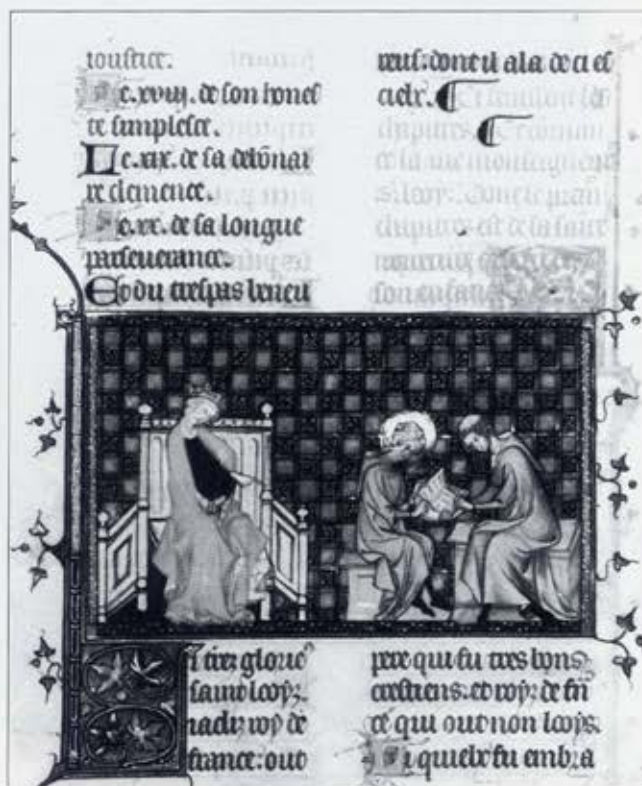 ioustice.
Le .xviij. de son hones
te simplesce.
Le .xix. de sa debonai
re clemence.
Le .xx. de sa longue
perseuerance.
Et du trespas beneu
reus. dont il ala de ci es
ciex.
i tres glorieus
saint loys.
iadis roy de
france. out
pere qui fu tres bons
crestiens. et roy. de fran
ce qui out non loys.
quiex fu embra